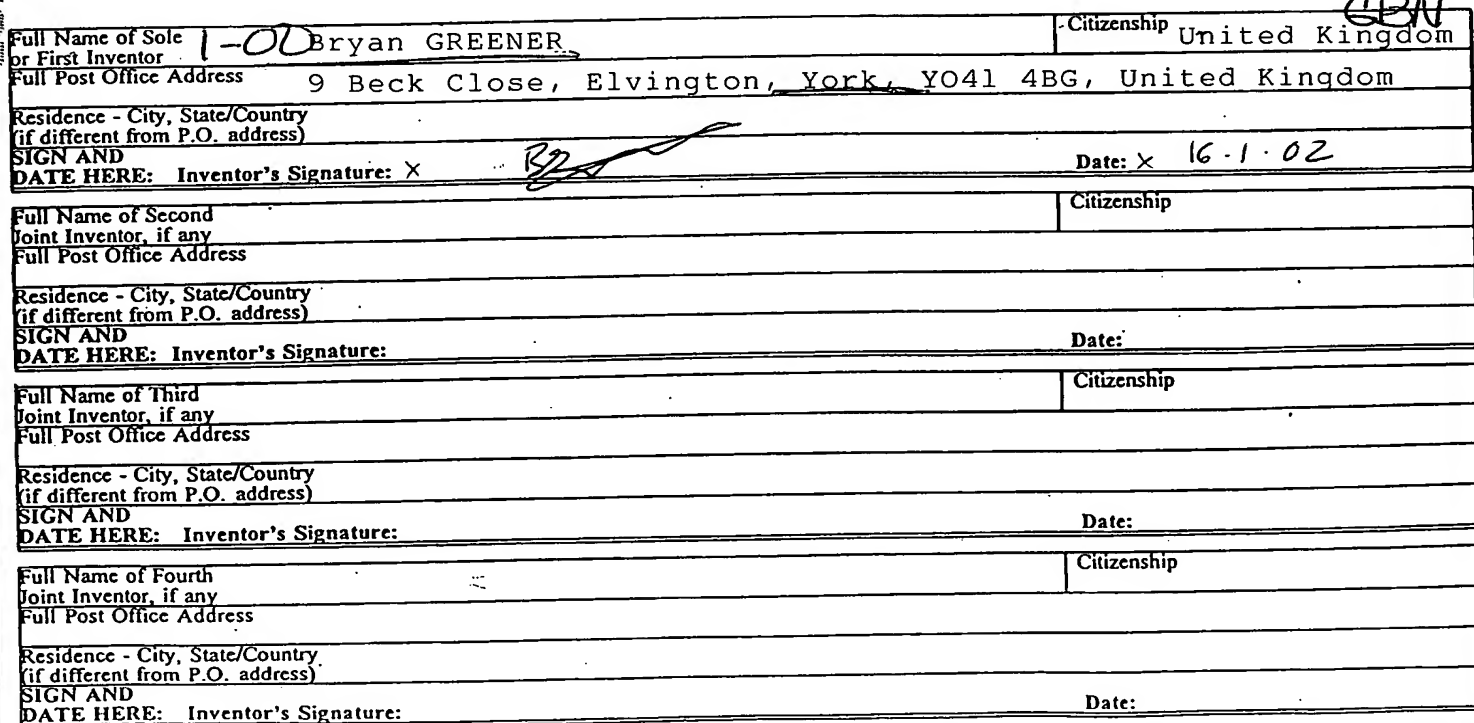 GBN
Full Name of Sole 1-00 Bryan GREENER Citizenship United Kingdom
or First Inventor
Full Post Office Address 9 Beck Close, Elvington, York, YO41 4BG, United Kingdom
Residence - City, State/Country
(if different from P.O. address)
SIGN AND
DATE HERE: Inventor's Signature: X Date: X 16.1.02
Full Name of Second Citizenship
Joint Inventor, if any
Full Post Office Address
Residence - City, State/Country
(if different from P.O. address)
SIGN AND
DATE HERE: Inventor's Signature: Date:
Full Name of Third Citizenship
Joint Inventor, if any
Full Post Office Address
Residence - City, State/Country
(if different from P.O. address)
SIGN AND
DATE HERE: Inventor's Signature: Date:
Full Name of Fourth Citizenship
Joint Inventor, if any
Full Post Office Address
Residence - City, State/Country
(if different from P.O. address)
SIGN AND
DATE HERE: Inventor's Signature: Date: